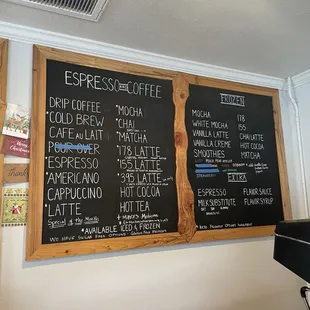 ESPRESSO AND COFFEE
DRIP COFFEE
*COLD BREW
CAFE AU LAIT
POUR OVER
*ESPRESSO
*AMERICANO
CAPPUCCINO
*LATTE
Special of the Month
*MOCHA
*CHAI
*MATCHA
*178 LATTE
*155 LATTE
*395 LATTE
HOT COCOA
HOT TEA
*AVAILABLE ICED & FROZEN
WE HAVE
FROZEN
MOCHA
WHITE MOCHA
VANILLA LATTE
VANILLA CREME
SMOOTHIES
178
155
CHAI LATTE
HOT COCOA
MATCHA
EXTRA
ESPRESSO
MILK SUBSTITUTE
FLAVOR SAUCE
FLAVOR SYRUP
Thank